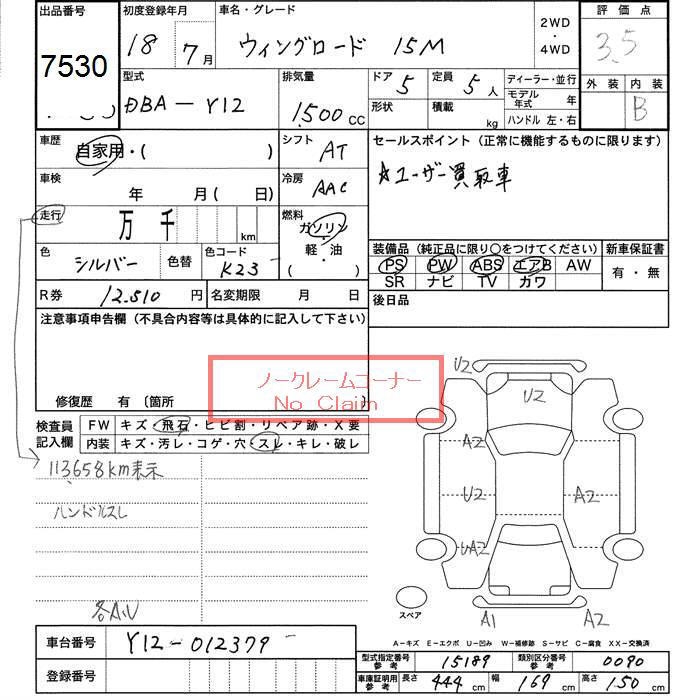 出品番号 初度登録年月 車名・グレード 2WD・4WD 評価点
7530 18 7月 ウィングロード 15M 3.5
型式 排気量 ドア 5 定員 5人 ディーラー・並行 外装 内装
DBA-Y12 1,500CC 形状 積載 kg モデル年式 年 B
ハンドル 左・右
車歴 自家用・( ) シフト AT セールスポイント(正常に機能するものに限ります)
車検 年 月(日) 冷房 AAC ☆ユーザー買取車
走行 万 千 km 燃料 ガソリン・軽・油( )
色 シルバー 色替 色コード K23 装備品(純正品に限り○をつけてください) 新車保証書
PS PW ABS エアB AW 有・無
SR ナビ TV カワ
R券 12.510円 名変期限 月 日 後日品
注意事項申告欄(不具合内容等は具体的に記入して下さい)
ノークレームコーナー
No Claim
修復歴 有(箇所 )
検査員記入欄 FW キズ・飛石・ヒビ割・リペア跡・X要
内装 キズ・汚レ・コゲ・穴・スレ・キレ・破レ
113658km表示
ハンドルスレ
各A,U
U2
U2
A2
U2 A2
UA2
スペア A1 A2
A-キズ E-エクボ U-凹み W-補修跡 S-サビ C-腐食 XX-交換済
車台番号 Y12-012379
登録番号
型式指定番号参考 15189 類別区分番号参考 0090
車庫証明用参考 長さ 444cm 幅 169cm 高さ 150cm